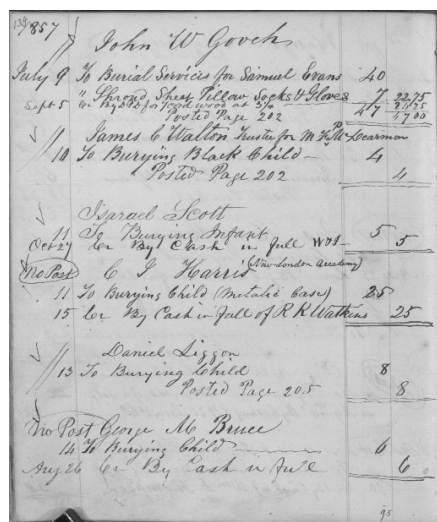 1857
John W Gooch
July 9 To Burial Services for Samuel Evans 40
" Shroud Sheet Pillow Socks & Gloves 7 22.75
Sept 5 Cr By for wood at 3½ 47 24.25
Posted Page 202 47 00
James C Walton Trustee for M McDearmon
10 To Burying Black Child 4
Posted Page 202 4
Isarael Scott
11 To Burying Infant 5
Oct 27 Cr By Cash in full 5
No Post C J Harris (New London Academy)
11 To Burying Child (Metalic Case) 25
15 Cr By Cash in full of R K Watkins 25
Daniel Liggon
13 To Burying Child 8
Posted Page 205 8
No Post George M Bruce
14 To Burying Child 6
Aug 26 Cr By Cash in full 6
95